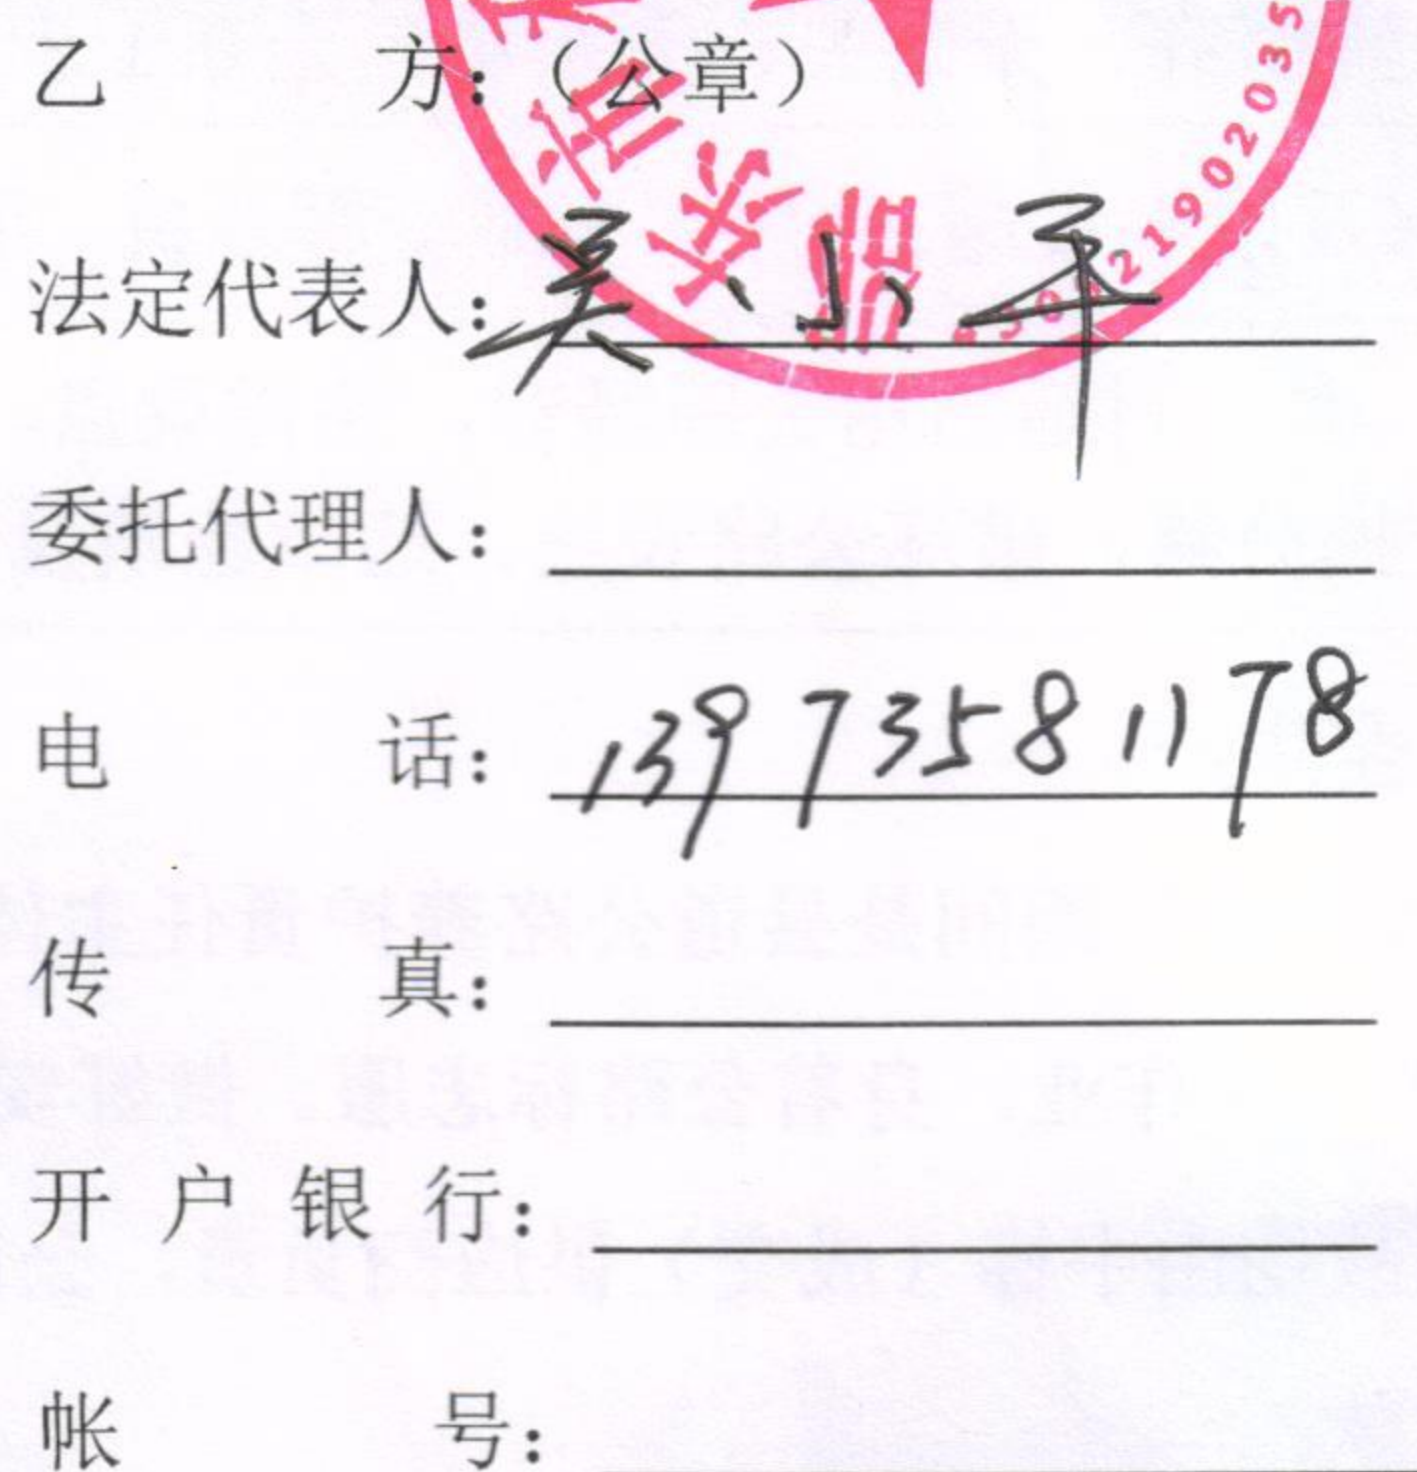 乙 方：（公章）
法定代表人：吴小平
委托代理人：
电 话：13973581178
传 真：
开 户 银 行：
帐 号：